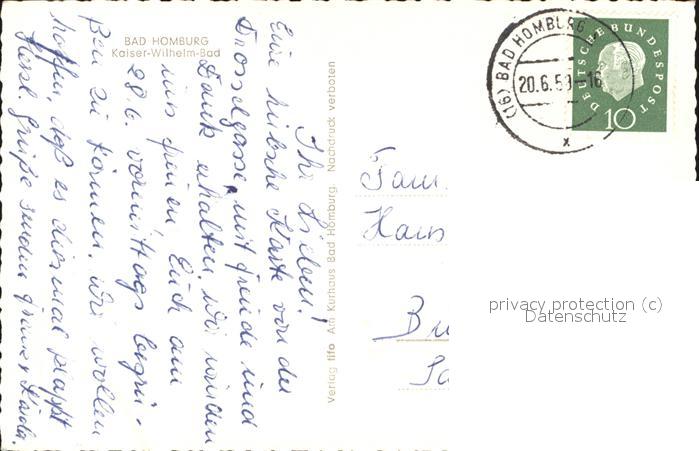 BAD HOMBURG
Kaiser-Wilhelm-Bad
Ihr Lieben!
Eine hübsche Karte von der
Drosselgasse mit Freude und
Dank erhalten. Wir würden
uns freuen, Euch am
28.6. vormittags begrü-
ßen zu können. Wir wollen
hoffen, daß es diesmal klappt
Herzl. Grüße senden
Verlag fifo Am Kurhaus Bad Homburg. Nachdruck verboten
Fam.
Hans
(16) BAD HOMBURG
20.6.59-16
x
DEUTSCHE BUNDESPOST
10
privacy protection (c)
Datenschutz